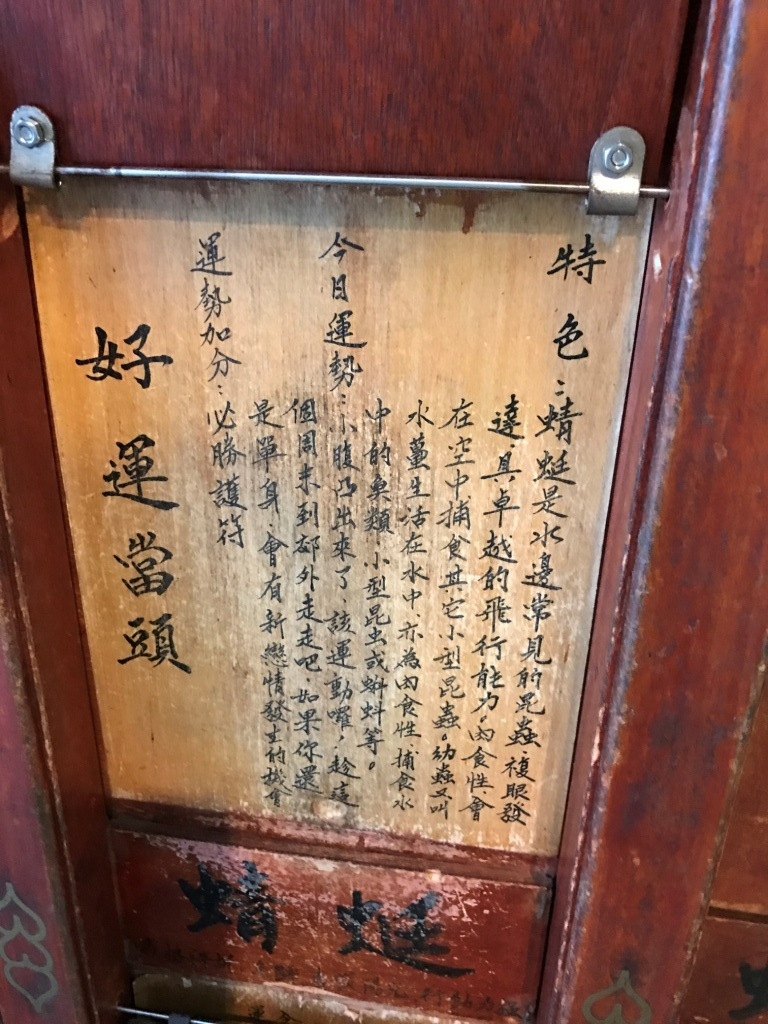 特色:蜻蜓是水邊常見的昆蟲、複眼發
達、具卓越的飛行能力。肉食性、會
在空中捕食其它小型昆蟲。幼蟲又叫
水蠆生活在水中、亦為肉食性、捕食水
中的魚類、小型昆虫或蝌蚪等。
今日運勢:小腹凸出來了、該運動囉,趁這
個周末到郊外走走吧、如果你還
是單身、會有新戀情發生的機會
運勢加分:必勝護符
好運當頭
蜻蜓